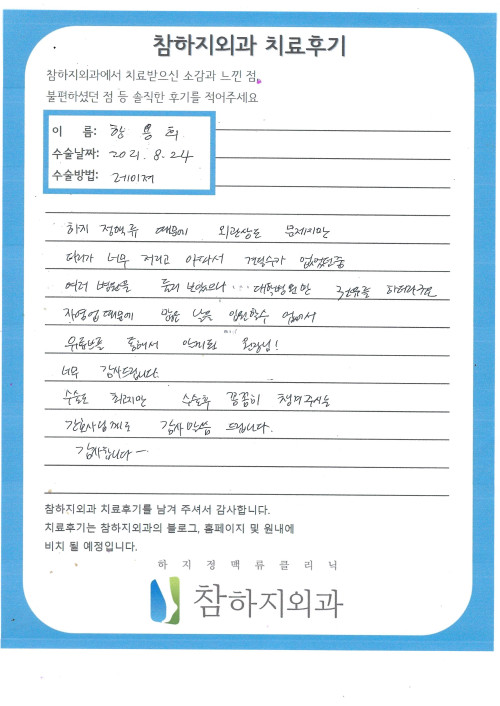 참하지외과 치료후기
참하지외과에서 치료받으신 소감과 느낀 점,
불편하셨던 점 등 솔직한 후기를 적어주세요
이 름: 황용희
수술날짜: 2021. 8. 24
수술방법: 레이저
하지 정맥류 때문에 외관상도 문제지만
다리가 너무 저리고 아파서 견딜수가 없었던중
여러 병원을 들러 보았으나... 대학병원만
자영업때문에 많은 날을 입원할수 없어서
유튜브를 통해서 알게된 원장님!
너무 감사드립니다.
수술도 최고지만 수술후 꼼꼼히 챙겨주시는
간호사님께도 감사말씀 드립니다.
감사합니다ㅡ
참하지외과 치료후기를 남겨 주셔서 감사합니다.
치료후기는 참하지외과의 블로그, 홈페이지 및 원내에
비치 될 예정입니다.
하지정맥류클리닉
참하지외과